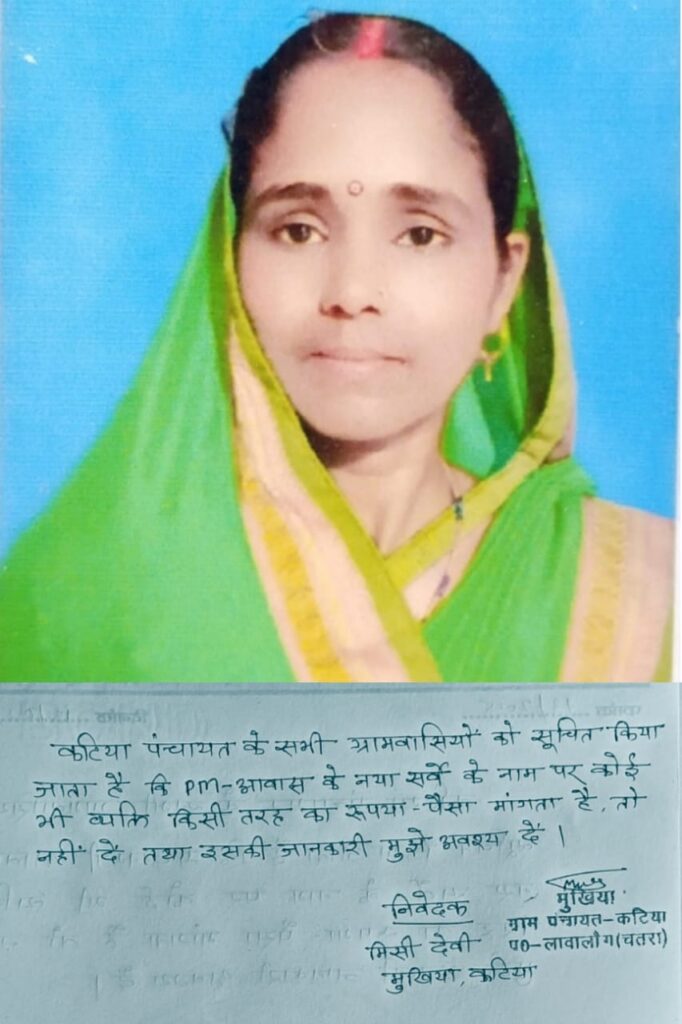 कटिया पंचायत के सभी ग्रामवासियों को सूचित किया
जाता है कि PM-आवास के नया सर्वे के नाम पर कोई
भी व्यक्ति किसी तरह का रूपया-पैसा मांगता है, तो
नहीं दें तथा इसकी जानकारी मुझे अवश्य दें ।
निवेदक
मिसी देवी
मुखिया, कटिया
मुखिया
ग्राम पंचायत-कटिया
प०-लावालौंग (चतरा)